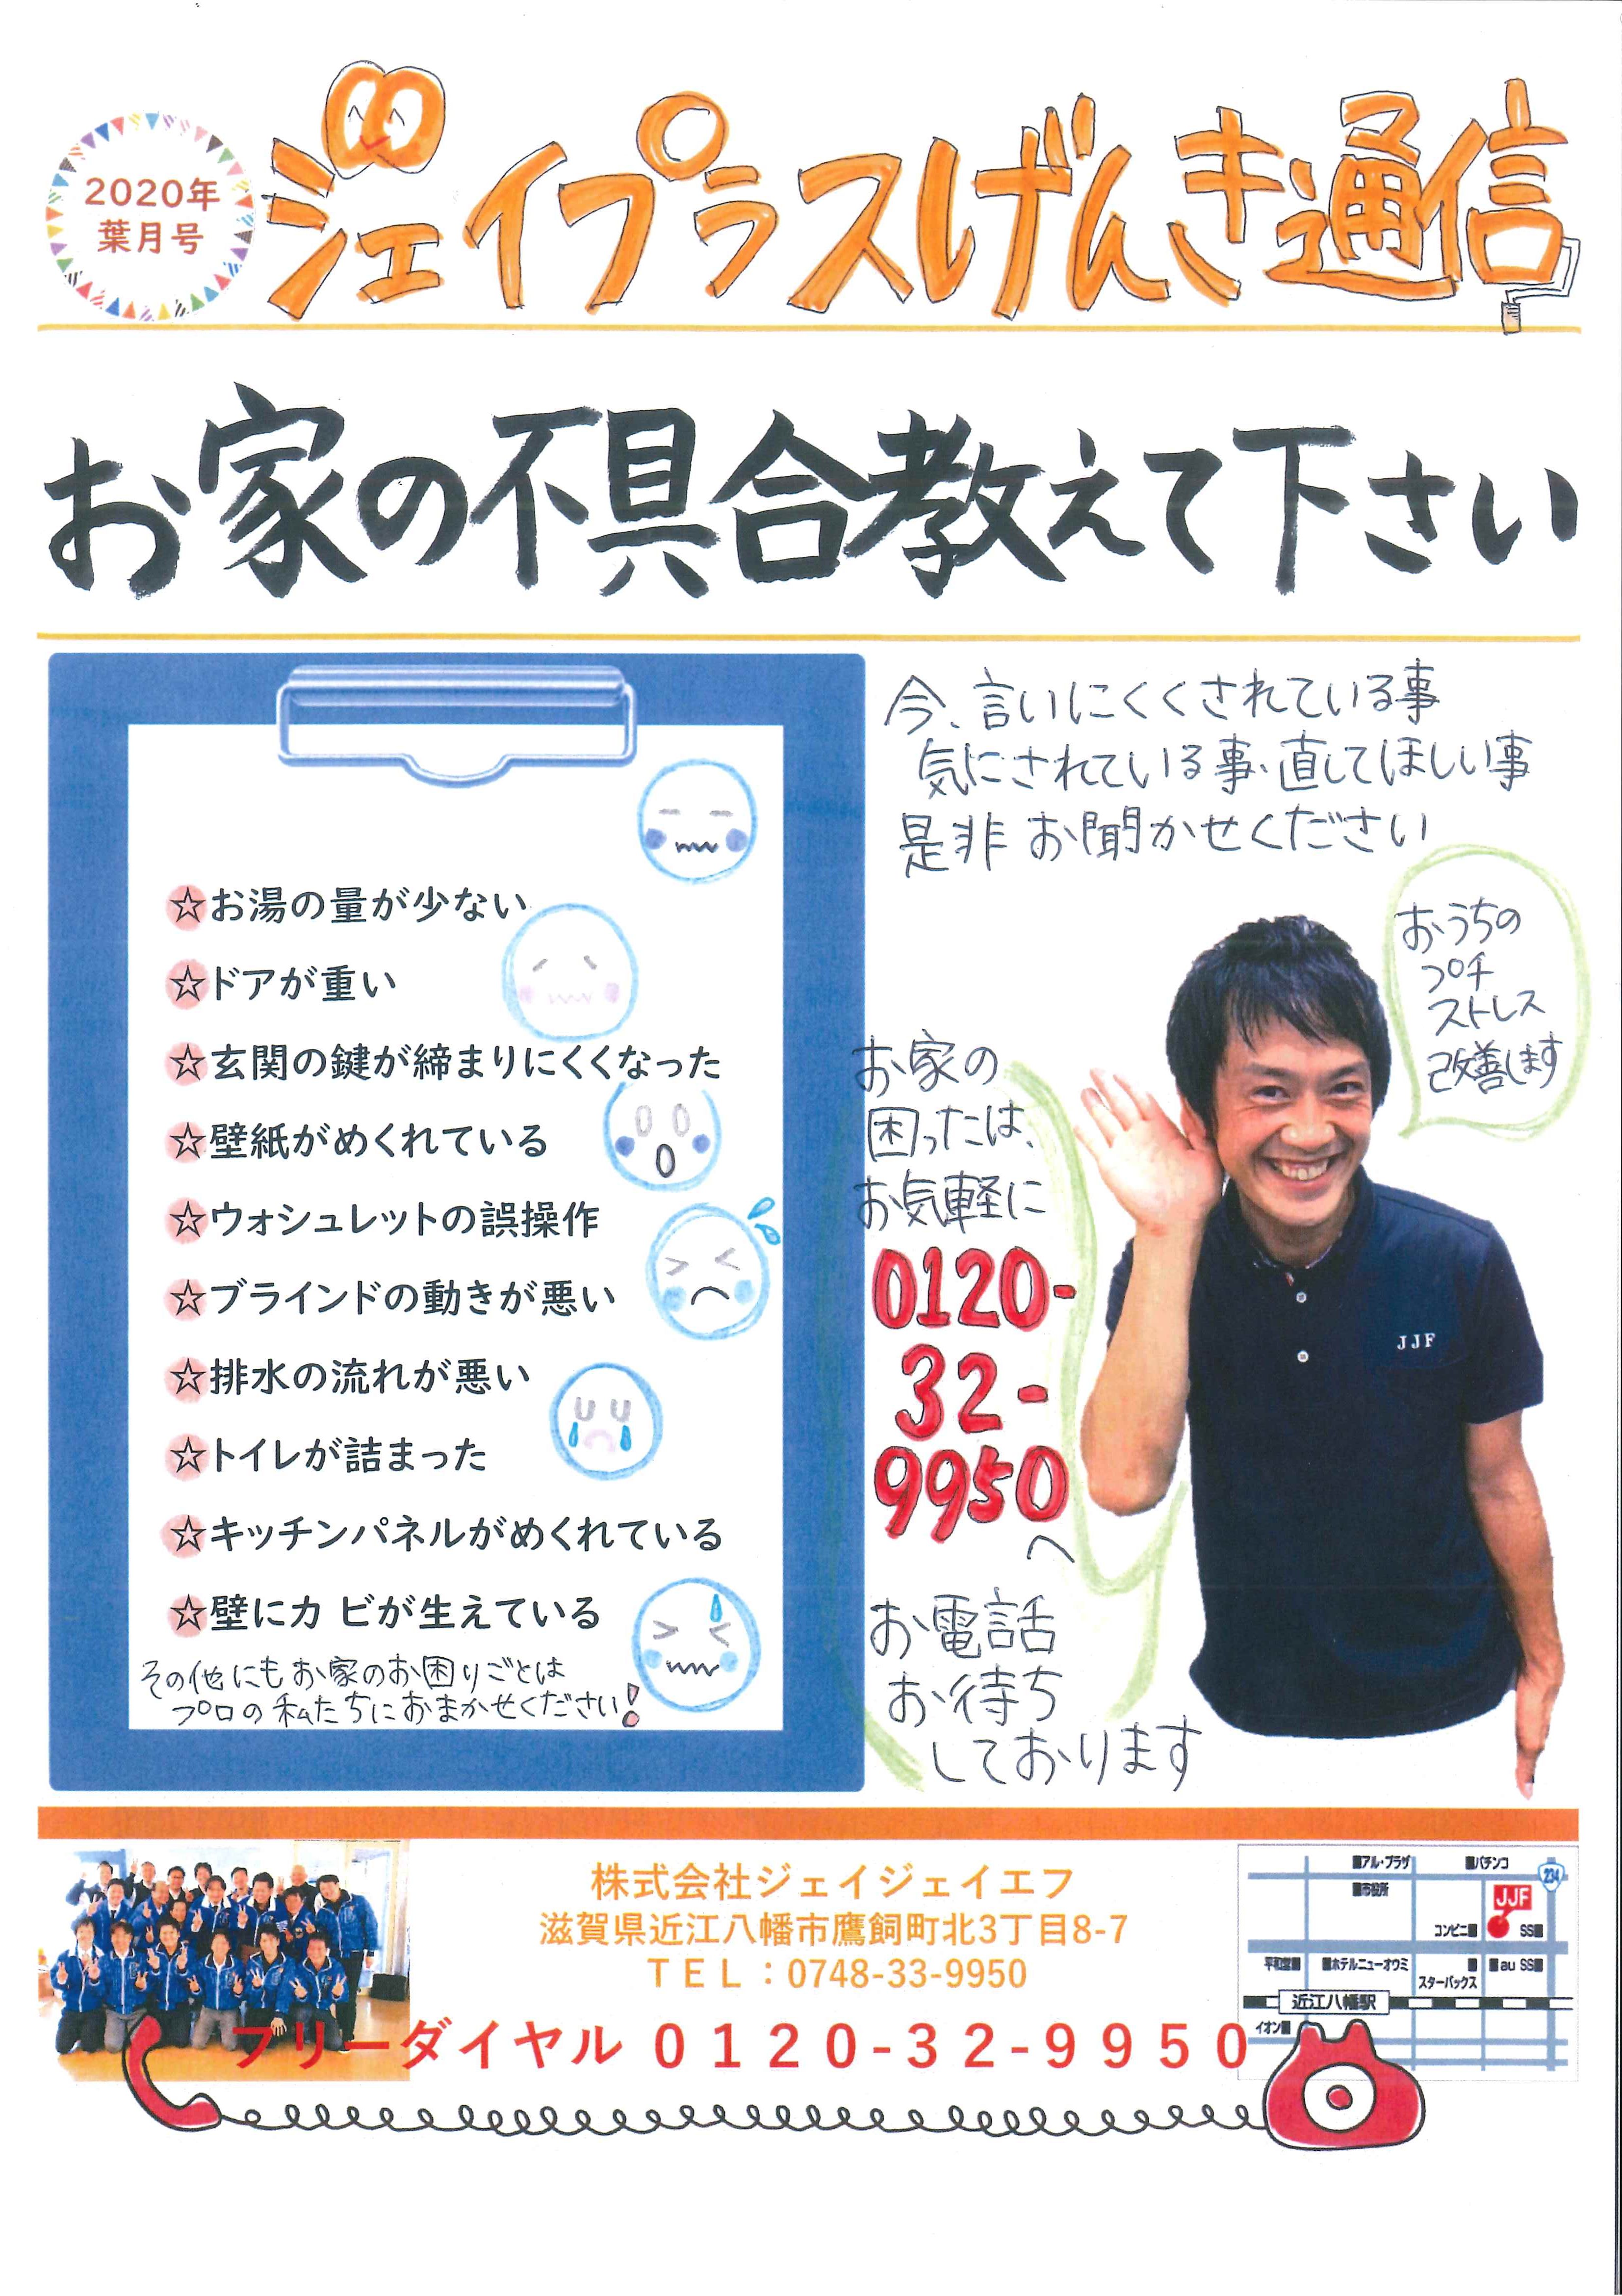 2020年
葉月号
ジェイプラスげんき通信
お家の不具合教えて下さい
今、言いにくくされている事
気にされている事・直してほしい事
是非 お聞かせください
☆お湯の量が少ない
☆ドアが重い
☆玄関の鍵が締まりにくくなった
☆壁紙がめくれている
☆ウォシュレットの誤操作
☆ブラインドの動きが悪い
☆排水の流れが悪い
☆トイレが詰まった
☆キッチンパネルがめくれている
☆壁にカ ビが生えている
その他にもお家のお困りごとは
プロの私たちにおまかせください!
おうちの
プチ
ストレス
改善します
お家の
困ったは、
お気軽に
0120-
32-
9950
へ
お電話
お待ち
しております
JJF
株式会社ジェイジェイエフ
滋賀県近江八幡市鷹飼町北3丁目8-7
TEL：0748-33-9950
フリーダイヤル 0120-32-9950
■アル・プラザ
■パチンコ
234
■市役所
JJF
コンビニ■
SS■
平和堂■
■ホテルニューオウミ
■au SS■
スターバックス
近江八幡駅
イオン■